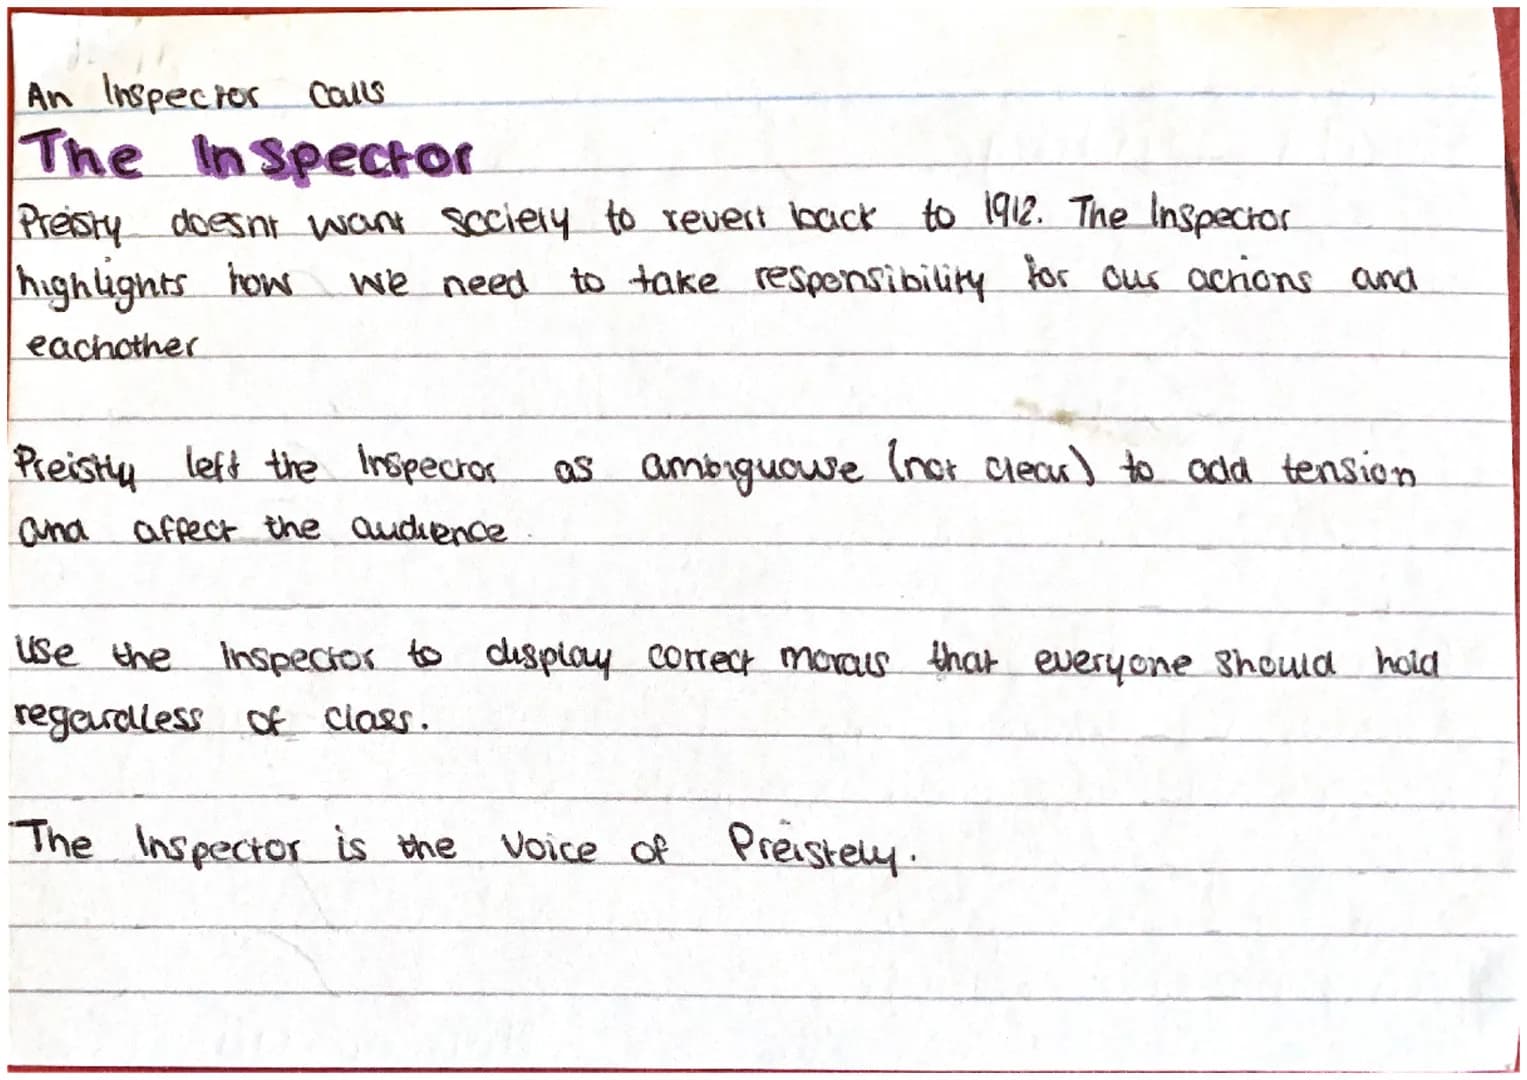 An Inspector Calls
The Inspector
Preisty doesnt want society to revert back to 1912. The Inspector
highlights how we need to take responsibility for our actions and
eachother
Preistly left the Inspector as ambiguouse (not clear) to add tension
and affect the audience.
Use the inspector to display correct morals that everyone should hold
regardless of class.
The Inspector is the voice of Preistely.